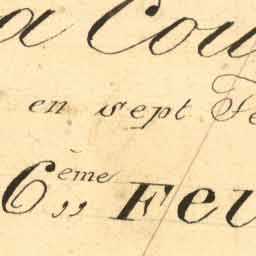 a Cou
en sept Fe
6ème Feu